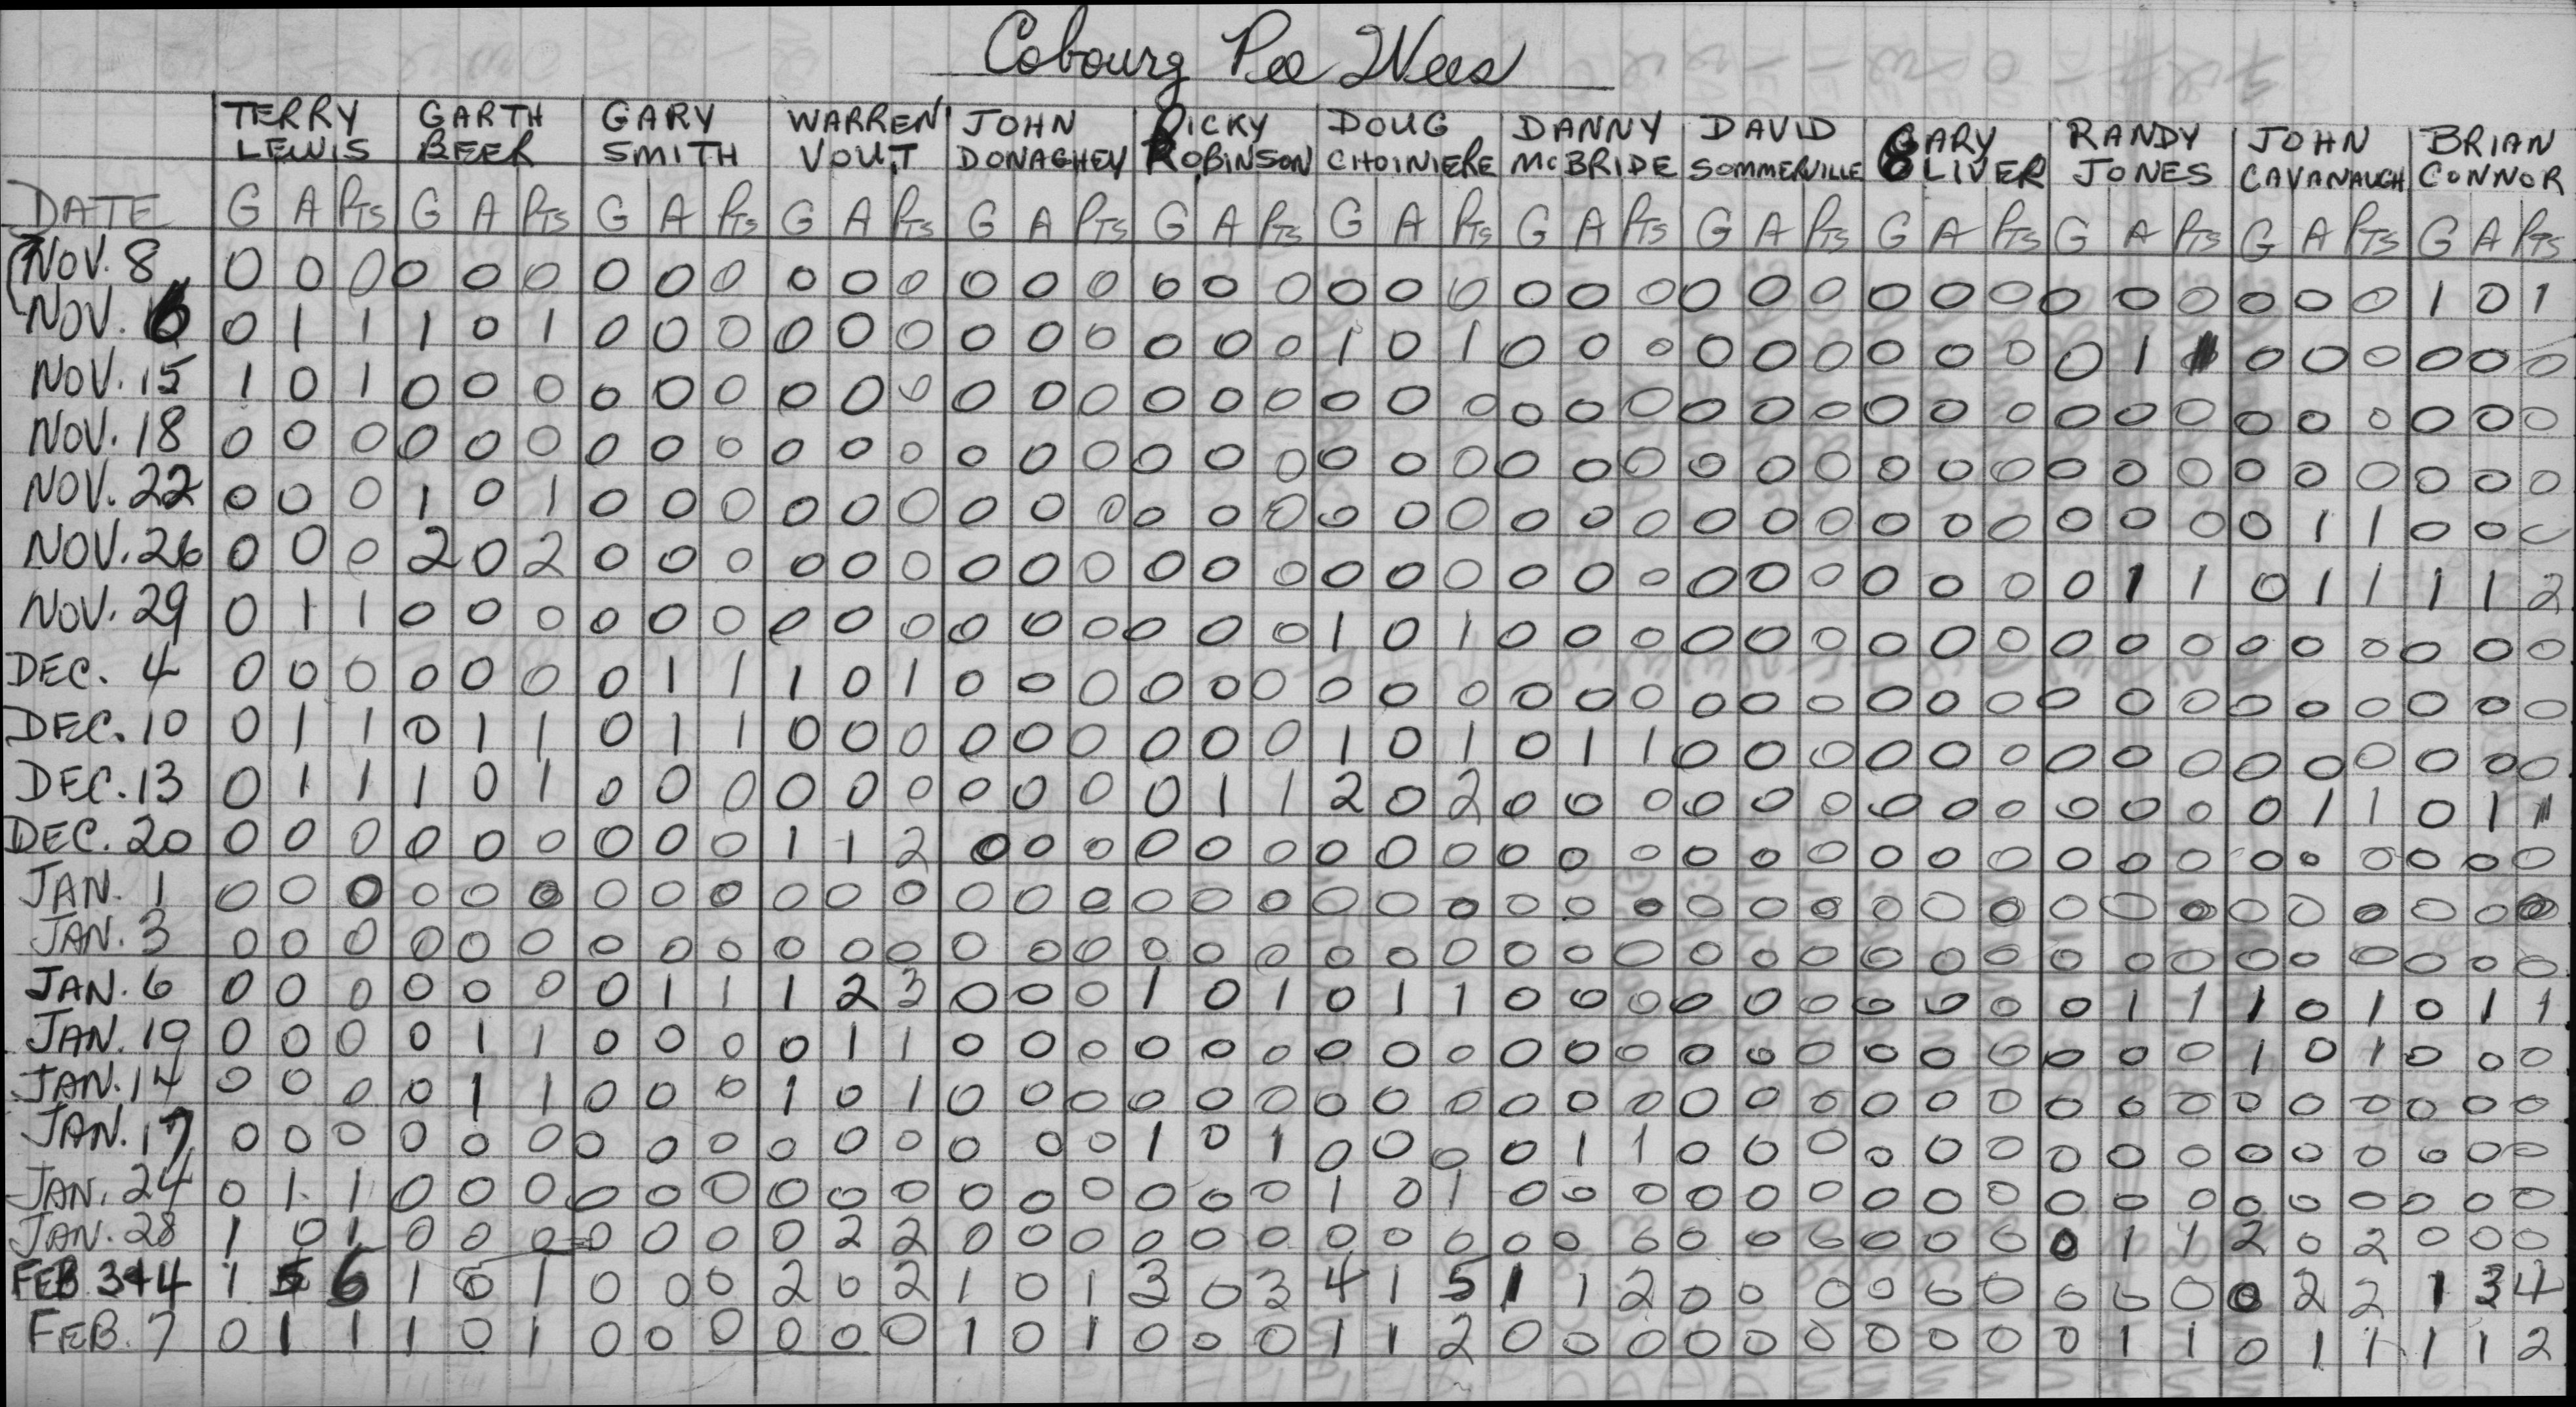 Cobourg Pee Wees
TERRY GARTH GARY WARREN JOHN RICKY DOUG DANNY DAVID GARY RANDY JOHN BRIAN
LEWIS BEER SMITH VOUT DONAGHEY ROBINSON CHOINIERE MCBRIDE SOMMERVILLE OLIVER JONES CAVANAUGH CONNOR
DATE G A PTS G A PTS G A PTS G A PTS G A PTS G A PTS G A PTS G A PTS G A PTS G A PTS G A PTS G A PTS G A PTS
NOV. 8 0 0 0 0 0 0 0 0 0 0 0 0 0 0 0 0 0 0 0 0 0 0 0 0 0 0 0 0 0 0 0 0 0 0 0 0 1 0 1
NOV. 6 0 1 1 1 0 1 0 0 0 0 0 0 0 0 0 0 0 0 1 0 1 0 0 0 0 0 0 0 0 0 0 1 1 0 0 0 0 0 0
NOV. 15 1 0 1 0 0 0 0 0 0 0 0 0 0 0 0 0 0 0 0 0 0 0 0 0 0 0 0 0 0 0 0 0 0 0 0 0 0 0 0
NOV. 18 0 0 0 0 0 0 0 0 0 0 0 0 0 0 0 0 0 0 0 0 0 0 0 0 0 0 0 0 0 0 0 0 0 0 0 0 0 0 0
NOV. 22 0 0 0 1 0 1 0 0 0 0 0 0 0 0 0 0 0 0 0 0 0 0 0 0 0 0 0 0 0 0 0 0 0 0 1 1 0 0 0
NOV. 26 0 0 0 2 0 2 0 0 0 0 0 0 0 0 0 0 0 0 0 0 0 0 0 0 0 0 0 0 0 0 0 1 1 0 1 1 1 1 2
NOV. 29 0 1 1 0 0 0 0 0 0 0 0 0 0 0 0 0 0 0 1 0 1 0 0 0 0 0 0 0 0 0 0 0 0 0 0 0 0 0 0
DEC. 4 0 0 0 0 0 0 0 1 1 1 0 1 0 0 0 0 0 0 0 0 0 0 0 0 0 0 0 0 0 0 0 0 0 0 0 0 0 0 0
DEC. 10 0 1 1 0 1 1 0 1 1 0 0 0 0 0 0 0 0 0 1 0 1 0 1 1 0 0 0 0 0 0 0 0 0 0 0 0 0 0 0
DEC. 13 0 1 1 1 0 1 0 0 0 0 0 0 0 0 0 0 1 1 2 0 2 0 0 0 0 0 0 0 0 0 0 0 0 0 1 1 0 1 1
DEC. 20 0 0 0 0 0 0 0 0 0 1 1 2 0 0 0 0 0 0 0 0 0 0 0 0 0 0 0 0 0 0 0 0 0 0 0 0 0 0 0
JAN. 1 0 0 0 0 0 0 0 0 0 0 0 0 0 0 0 0 0 0 0 0 0 0 0 0 0 0 0 0 0 0 0 0 0 0 0 0 0 0 0
JAN. 3 0 0 0 0 0 0 0 0 0 0 0 0 0 0 0 0 0 0 0 0 0 0 0 0 0 0 0 0 0 0 0 0 0 0 0 0 0 0 0
JAN. 6 0 0 0 0 0 0 0 1 1 1 2 3 0 0 0 1 0 1 0 1 1 0 0 0 0 0 0 0 0 0 0 1 1 1 0 1 0 1 1
JAN. 10 0 0 0 0 1 1 0 0 0 0 1 1 0 0 0 0 0 0 0 0 0 0 0 0 0 0 0 0 0 0 0 0 0 1 0 1 0 0 0
JAN. 14 0 0 0 0 1 1 0 0 0 1 0 1 0 0 0 0 0 0 0 0 0 0 0 0 0 0 0 0 0 0 0 0 0 0 0 0 0 0 0
JAN. 17 0 0 0 0 0 0 0 0 0 0 0 0 0 0 0 1 0 1 0 0 0 0 1 1 0 0 0 0 0 0 0 0 0 0 0 0 0 0 0
JAN. 24 0 1 1 0 0 0 0 0 0 0 0 0 0 0 0 0 0 0 1 0 1 0 0 0 0 0 0 0 0 0 0 0 0 0 0 0 0 0 0
JAN. 28 1 0 1 0 0 0 0 0 0 0 2 2 0 0 0 0 0 0 0 0 0 0 0 0 0 0 0 0 0 0 0 1 1 2 0 2 0 0 0
FEB 3+4 1 5 6 1 0 1 0 0 0 2 0 2 1 0 1 3 0 3 4 1 5 1 1 2 0 0 0 0 0 0 0 0 0 0 2 2 1 3 4
FEB. 7 0 1 1 1 0 1 0 0 0 0 0 0 1 0 1 0 0 0 1 1 2 0 0 0 0 0 0 0 0 0 0 1 1 0 1 1 1 1 2